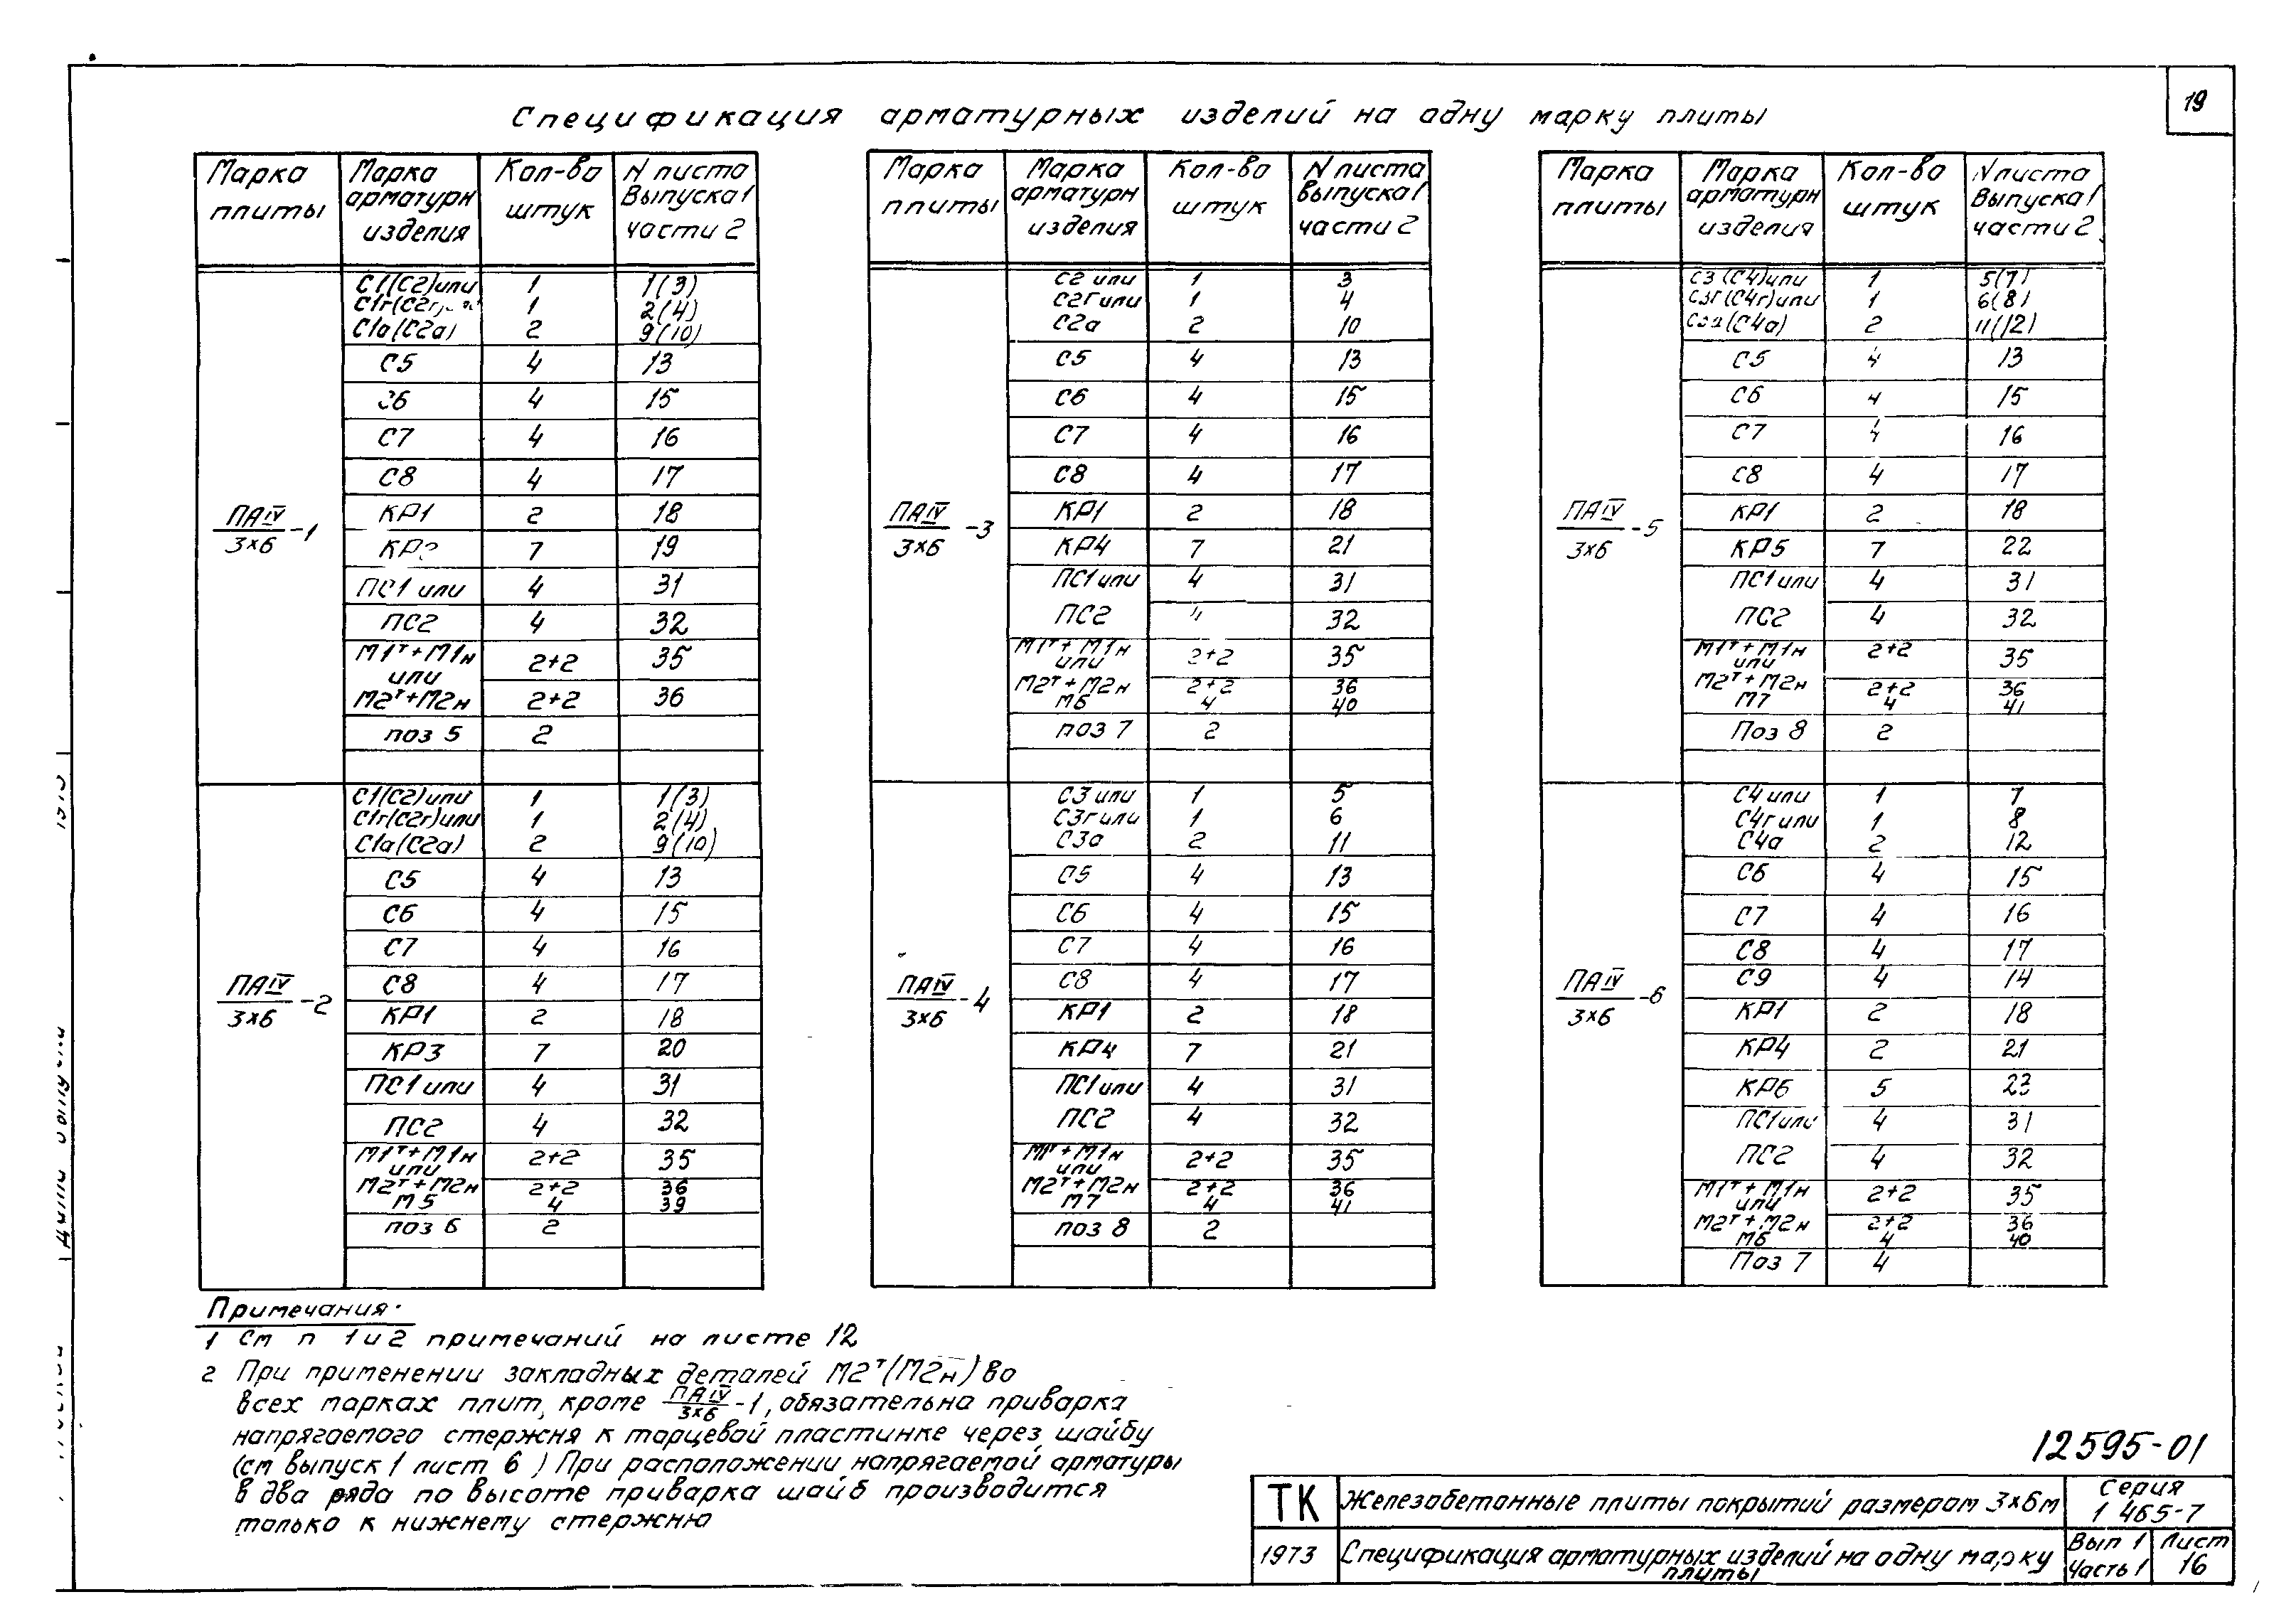 19
Спецификация арматурных изделий на одну марку плиты
Марка плиты | Марка арматурн изделия | Кол-во штук | N листа Выпуска 1 части 2
ПАIV/3х6 -1
С1(С2)или 1 1(3)
С1г(С2г) 1 2(4)
С1а(С2а) 2 9(10)
С5 4 13
С6 4 15
С7 4 16
С8 4 17
КР1 2 18
КР2 7 19
ПС1 или 4 31
ПС2 4 32
М1т+М1н 2+2 35
или
М2т+М2н 2+2 36
поз 5 2
ПАIV/3х6 -2
С1(С2)или 1 1(3)
С1г(С2г)или 1 2(4)
С1а(С2а) 2 9(10)
С5 4 13
С6 4 15
С7 4 16
С8 4 17
КР1 2 18
КР3 7 20
ПС1 или 4 31
ПС2 4 32
М1т+М1н 2+2 35
или
М2т+М2н 2+2 36
М5 4 39
поз 6 2
Марка плиты | Марка арматурн изделия | Кол-во штук | N листа Выпуска 1 части 2
ПАIV/3х6 -3
С2 или 1 3
С2г или 1 4
С2а 2 10
С5 4 13
С6 4 15
С7 4 16
С8 4 17
КР1 2 18
КР4 7 21
ПС1 или 4 31
ПС2 4 32
М1т+М1н 2+2 35
или
М2т+М2н 2+2 36
М6 4 40
поз 7 2
ПАIV/3х6 -4
С3 или 1 5
С3г или 1 6
С3а 2 11
С5 4 13
С6 4 15
С7 4 16
С8 4 17
КР1 2 18
КР4 7 21
ПС1 или 4 31
ПС2 4 32
М1т+М1н 2+2 35
или
М2т+М2н 2+2 36
М7 4 41
поз 8 2
Марка плиты | Марка арматурн изделия | Кол-во штук | N листа Выпуска 1 части 2
ПАIV/3х6 -5
С3(С4)или 1 5(7)
С3г(С4г)или 1 6(8)
С3а(С4а) 2 11(12)
С5 4 13
С6 4 15
С7 4 16
С8 4 17
КР1 2 18
КР5 7 22
ПС1 или 4 31
ПС2 4 32
М1т+М1н 2+2 35
или
М2т+М2н 2+2 36
М7 4 41
Поз 8 2
ПАIV/3х6 -6
С4 или 1 7
С4г или 1 8
С4а 2 12
С6 4 15
С7 4 16
С8 4 17
С9 4 14
КР1 2 18
КР4 2 21
КР6 5 23
ПС1 или 4 31
ПС2 4 32
М1т+М1н 2+2 35
или
М2т+М2н 2+2 36
М6 4 40
Поз 7 4
Примечания:
1 См п 1 и 2 примечаний на листе 12
2 При применении закладных деталей М2т(М2н) во
всех марках плит, кроме ПАIV/3х6 -1, обязательна приварка
напрягаемого стержня к торцевой пластинке через шайбу
(см выпуск 1 лист 6 ) При расположении напрягаемой арматуры
в два ряда по высоте приварка шайб производится
только к нижнему стержню
12595-01
ТК Железобетонные плиты покрытий размером 3х6м Серия 1 465-7
1973 Спецификация арматурных изделий на одну марку плиты Вып 1 Часть 1 Лист 16